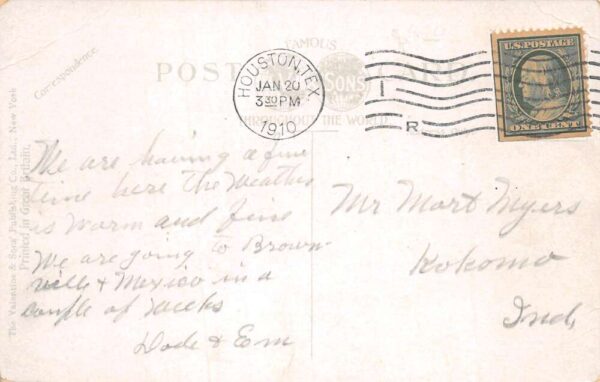 Correspondence.
FAMOUS
POST CARD
SONS
THROUGHOUT THE WORLD
HOUSTON, TEX.
JAN 20
3 30 PM
1910
I
R
U.S. POSTAGE
ONE CENT
The Valentine & Sons Publishing Co., Ltd., New York
Printed in Great Britain.
We are having a fine
time here The Weather
is warm and fine
We are going to Brown-
ville & Mexico in a
couple of weeks
Dode & Em
Mr Mort Myers
Kokomo
Ind,